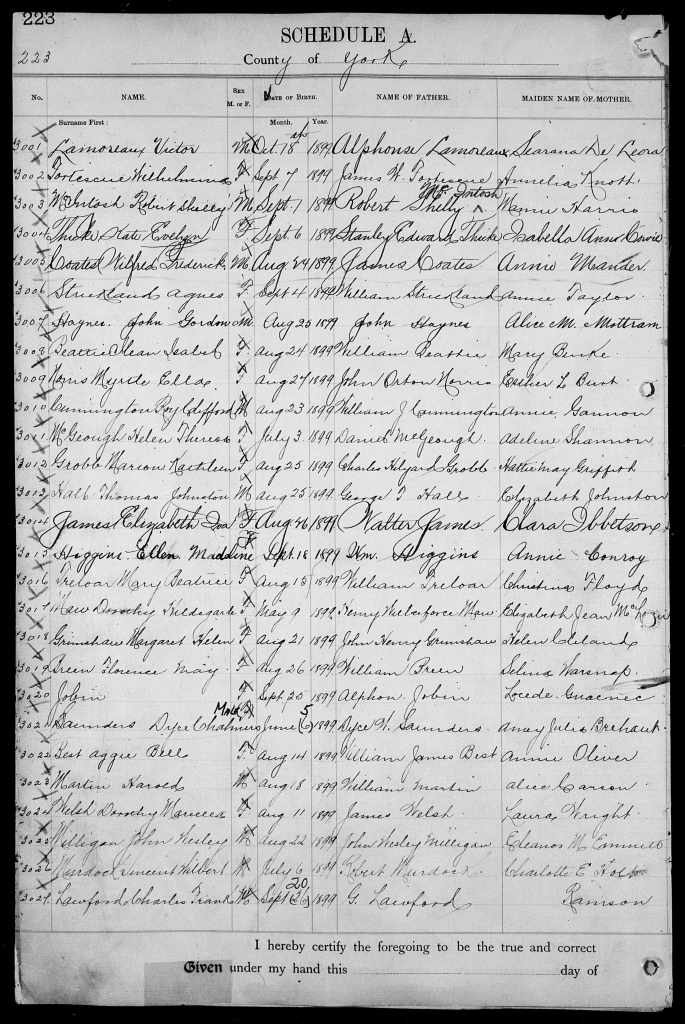 223
SCHEDULE A.
223 County of York
No. NAME. SEX M. or F. DATE OF BIRTH. NAME OF FATHER. MAIDEN NAME OF MOTHER.
Surname First: Month. Year.
3001 Lamoreaux Victor M Oct. 18th 1899 Alphonse Lamoreaux De
3002 Fortescue Wilhelmina F Sept 7 1899 James W. Fortescue Knott
3003 McIntosh Robert Shelley M Sept 1 1899 Robert Shelly ^ McIntosh Harris
3004 Thicke Kate Evelyn F Sept 6 1899 Stanley Edward Thicke Isabella Anne Cowie
3005 Coates Wilfred Frederick M Aug 24 1899 James Coates Annie Mander.
3006 Strickland Agnes F Sept 4 1899 William Strickland Annie Taylor
3007 Haynes. John Gordon M Aug 25 1899 John Haynes Alice M. Mottram
3008 Beattie Isabel F Aug 24 1899 William Beattie Mary Burke.
3009 Norris Myrtle Ella F Aug 27 1899 John Orton Norris Esther L Burt
3010 Cunnington Roy Clifford M Aug 23 1899 William J Cunnington Annie Gannon
3011 McGeough Helen Theresa F July 3 1899 Daniel McGeough. Adeline Shannon
3012 Groble Marion Kathleen F Aug 25 1899 Charles Hilyard Groble Hattie May Griffith
3013 Hall Thomas Johnston M Aug 25 1899 George T Hall Elizabeth Johnston
3014 James Elizabeth Iva F Aug 26 1899 Walter James. Clara Ibbetson
3015 Higgins Ellen Madeline F Sept. 18 1899 Wm. Higgins Annie Conroy
3016 Treloar Mary Beatrice F Aug 15 1899 William Treloar Christina Floyd
3017 Dorothy Hildegarde F May 9 1899 Henry Wilberforce Elizabeth Jean
3018 Grimshaw Margaret Helen F Aug 21 1899 John Henry Grimshaw Helen Cleland
3019 Breen Florence May F Aug 26 1899 William Breen Selina
3020 Jobin F Sept. 25 1899 Alphon Jobin
3021 Saunders Dyce Chalmers Male June (5) 1899 Dyce W. Saunders. Amey Julia Brehaut
3022 Best Aggie Bell F. Aug 14 1899 William James Best Annie Oliver
3023 Martin Harold M Aug 18 1899 William Martin Alice Carson
3024 Welsh Dorothy F Aug 11 1899 James Welsh Laura Wright.
3025 Milligan John Wesley M Aug 22 1899 John Wesley Milligan Eleanor M. Emmett
3026 Murdock Vincent Wilbert M July 6 1899 Robert Murdock Charlotte E
3027 Lawford Charles Frank M Sept 20 (26) 1899 G. Lawford Ramson
I hereby certify the foregoing to be the true and correct
Given under my hand this day of